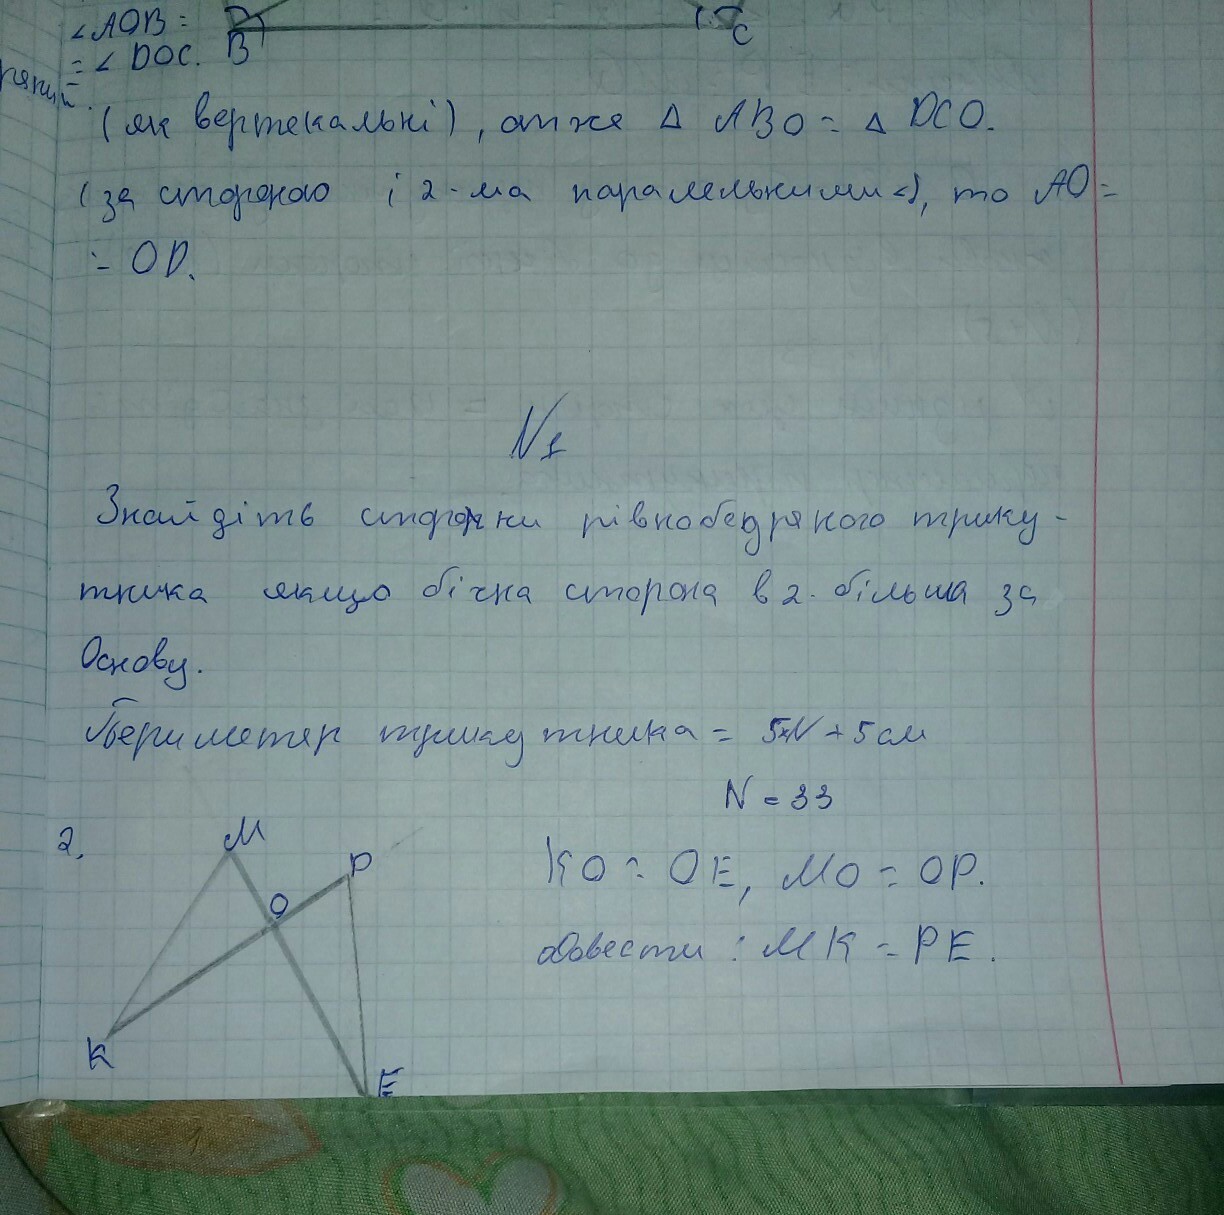 ∠AOB =
= ∠DOC. B C
(як вертекальні), отже Δ ABO = Δ DCO.
(за стороною і 2-ма паралельними ∠), то AO =
= OD.
N1
Знайдіть сторони рівнобедряного трику-
тника якщо бічна сторона в 2. більша за
Основу.
Периметер трикутника = 5·N + 5 см
N = 33
2. M P O K E
KO = OE, MO = OP.
Довести : MK = PE.